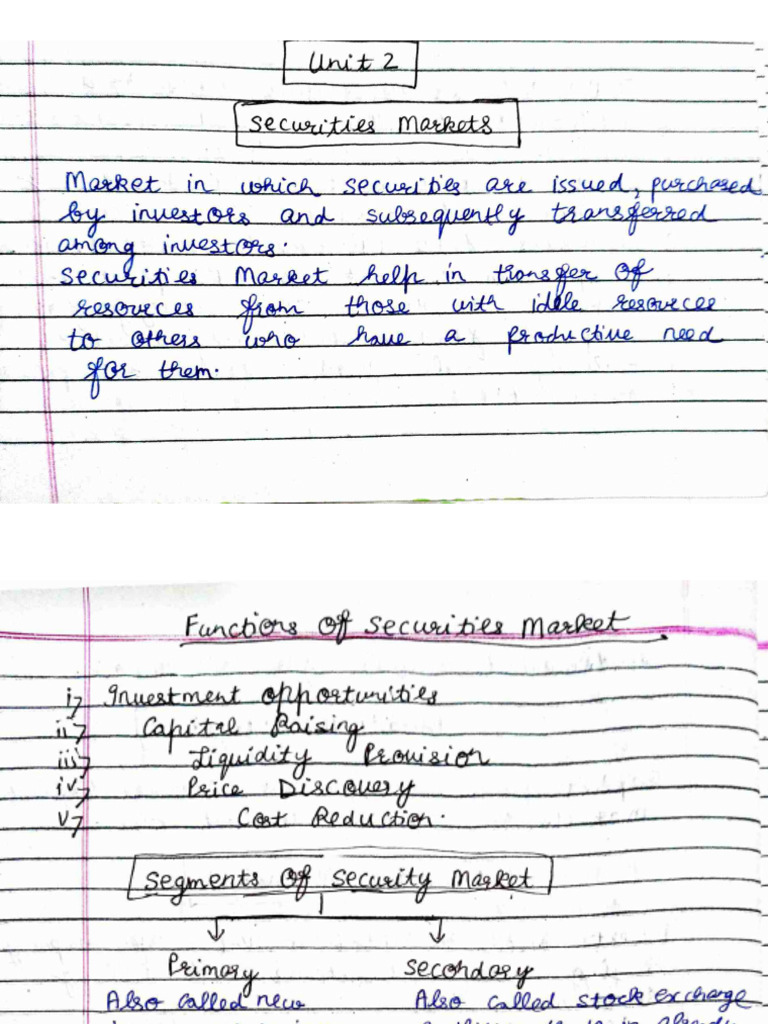 Unit 2
Securities Markets
Market in which securities are issued, purchased
by investors and subsequently transferred
among investors.
Securities Market help in transfer of
resources from those with idle resources
to others who have a productive need
for them.
Functions of Securities Market
i) Investment opportunities
ii) Capital Raising
iii) Liquidity Provision
iv) Price Discovery
v) Cost Reduction.
Segments of Security Market
Primary Secondary
Also called new Also called stock exchange